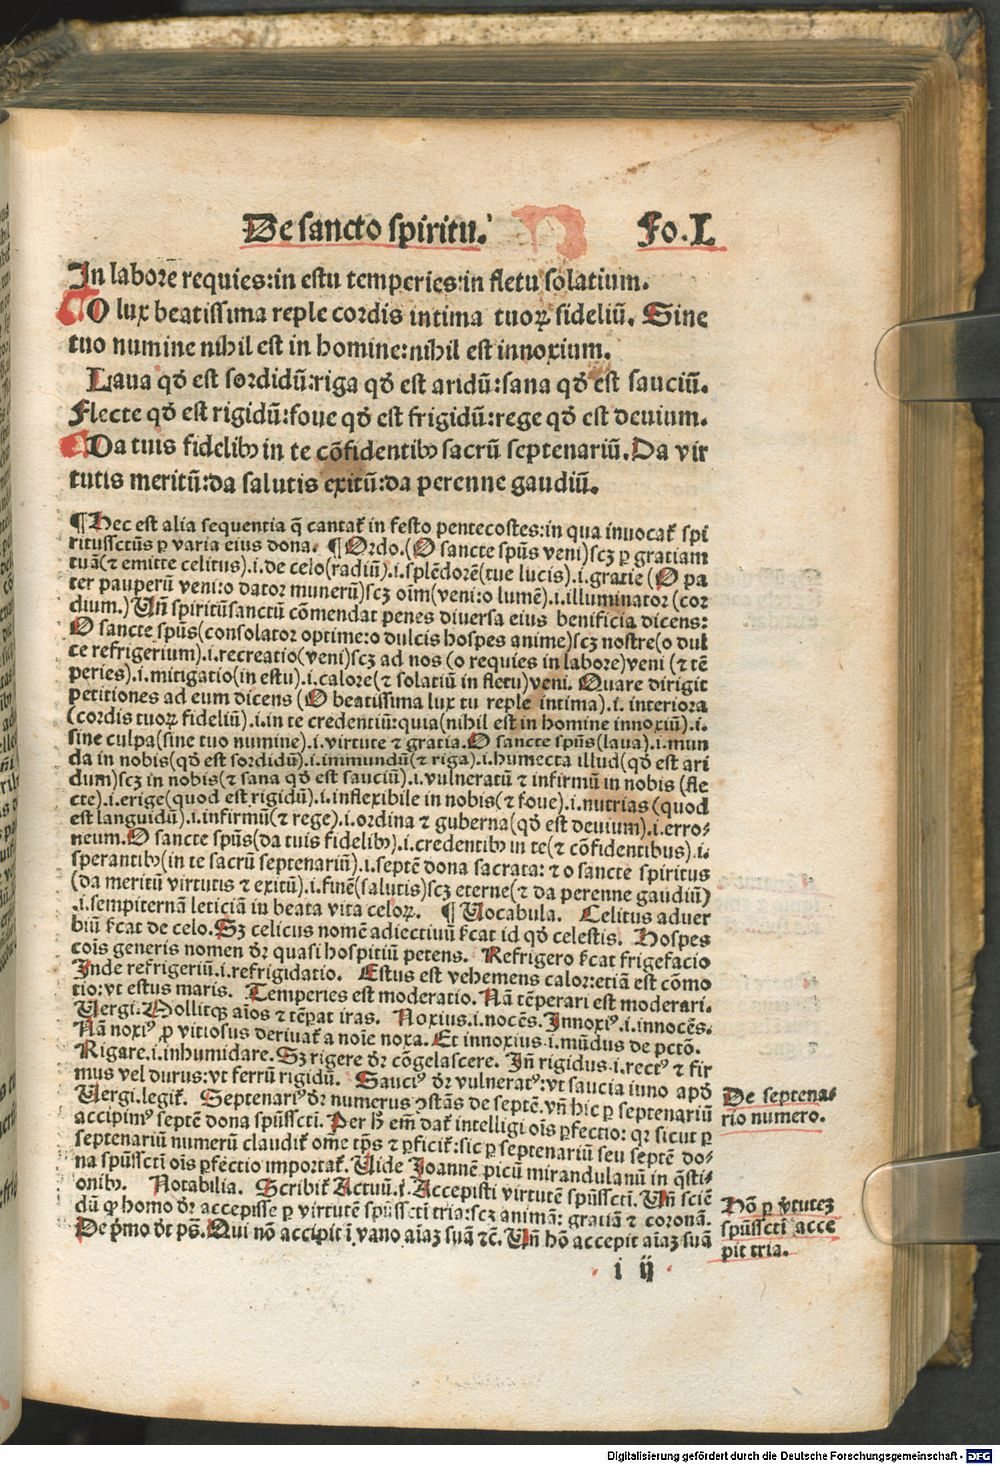 De sancto spiritu.
Fo. L
In labore requies: in estu temperies: in fletu solatium.
O lux beatissima reple cordis intima tuoꝝ fideliū. Sine
tuo numine nihil est in homine: nihil est innoxium.
Laua qd̓ est sordidū: riga qd̓ est aridū: sana qd̓ est sauciū.
Flecte qd̓ est rigidū: foue qd̓ est frigidū: rege qd̓ est deuium.
Da tuis fidelibꝰ in te cōfidentibꝰ sacrū septenariū. Da vir
tutis meritū: da salutis exitū: da perenne gaudiū.
¶ Hec est alia sequentia q̄ cantat̄ in festo pentecostes: in qua inuocat̄ spi
ritussctūs ꝑ varia eius dona. ¶ Ordo. (O sancte spūs veni) scꝫ ꝑ gratiam
tuā (⁊ emitte celitus) .i. de celo (radiū) .i. splēdorē (tue lucis) .i. gratie (O pa
ter pauperū veni: o dator munerū) scꝫ oīm (veni: o lumē) .i. illuminator (cor
dium.) Un̄ spiritūsanctū cōmendat penes diuersa eius benificia dicens:
O sancte spūs (consolator optime: o dulcis hospes anime) scꝫ nostre (o dul
ce refrigerium) .i. recreatio (veni) scꝫ ad nos (o requies in labore) veni (⁊ tē
peries) .i. mitigatio (in estu) .i. calore (⁊ solatiū in fletu) veni. Quare dirigit
petitiones ad eum dicens (O beatissima lux tu reple intima) .i. interiora
(cordis tuoꝝ fideliū) .i. in te credentiū: quia (nihil est in homine innoxiū) .i.
sine culpa (sine tuo numine) .i. virtute ⁊ gratia. O sancte spūs (laua) .i. mun
da in nobis (qd̓ est sordidū) .i. immundū (⁊ riga) .i. humecta illud (qd̓ est ari
dum) scꝫ in nobis (⁊ sana qd̓ est sauciū) .i. vulneratū ⁊ infirmū in nobis (fle
cte) .i. erige (quod est rigidū) .i. inflexibile in nobis (⁊ foue) .i. nutrias (quod
est languidū) .i. infirmū (⁊ rege) .i. ordina ⁊ guberna (qd̓ est deuium) .i. erro-
neum. O sancte spūs (da tuis fidelibꝰ) .i. credentibꝰ in te (⁊ cōfidentibus) .i.
sperantibꝰ (in te sacrū septenariū) .i. septē dona sacrata: ⁊ o sancte spiritus
(da meritū virtutis ⁊ exitū) .i. finē (salutis) scꝫ eterne (⁊ da perenne gaudiū)
.i. sempiternā leticiā in beata vita celoꝝ. ¶ Uocabula. Celitus aduer
biū s̓cat de celo. Sꝫ celicus nomē adiectiuū s̓cat id qd̓ celestis. Hospes
cōis generis nomen dr̄ quasi hospitiū petens. Refrigero s̓cat frigefacio
Inde refrigeriū .i. refrigidatio. Estus est vehemens calor: etiā est cōmo
tio: vt estus maris. Temperies est moderatio. Nā tēperari est moderari.
Uergi. Mollitqꝫ aīos ⁊ tēꝑat iras. Noxius .i. nocēs. Innoxiꝰ .i. innocēs.
Nā noxiꝰ ꝓ vitiosus deriuat̄ a noīe noxa. Et innoxius .i. mūdus de pctō.
Rigare .i. inhumidare. Sꝫ rigere dr̄ cōgelascere. In̄ rigidus .i. rectꝰ ⁊ fir
mus vel durus: vt ferrū rigidū. Sauciꝰ dr̄ vulneratꝰ: vt saucia iuno apd̓
Uergi. legit̄. Septenariꝰ dr̄ numerus ꝯstās de septē. vn̄ hic ꝑ septenariū
accipimꝰ septē dona spūssctī. Per hꝭ em̄ dat̄ intelligi oīs ꝑfectio: qꝛ sicut ꝑ
septenariū numerū claudit̄ om̄e tp̄s ⁊ ꝑficit̄: sic ꝑ septenariū seu septē do-
na spūssctī oīs ꝑfectio importat̄. Uide Joannē picū mirandulanū in q̄sti-
onibꝰ. Notabilia. Scribit̄ Actuū .i. Accepisti virtutē spūssctī. Un̄ sciē
dū ꝙ homo dr̄ accepisse ꝑ virtutē spūssctī tria: scꝫ animā: gratiā ⁊ coronā.
De p̓mo dt̄ ps̄. Qui nō accipit ī vano aīaꝫ suā ⁊c̄. Un̄ hō accepit aīaꝫ suā
De septena-
rio numero.
Hō ꝑ v̓tuteꝫ
spūssctī acce
pit tria.
i ij
Digitalisierung gefördert durch die Deutsche Forschungsgemeinschaft - DFG